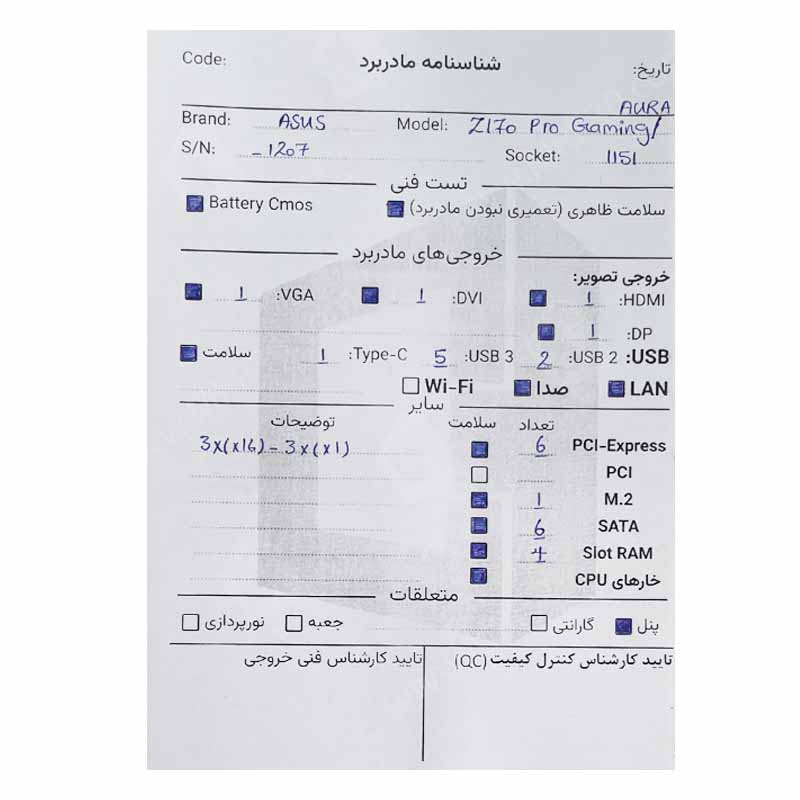 شناسنامه مادربرد Code:
تاریخ:
AURA
Brand: ASUS Model: Z170 Pro Gaming/
S/N: _1207 Socket: 1151
تست فنی
سلامت ظاهری (تعمیری نبودن مادربرد) Battery Cmos
خروجی‌های مادربرد
خروجی تصویر:
HDMI: 1 DVI: 1 VGA: 1
DP: 1
USB: USB 2: 2 USB 3: 5 Type-C: 1 سلامت
LAN صدا Wi-Fi
سایر
تعداد سلامت توضیحات
PCI-Express 6 3x(x16) - 3x(x1)
PCI
M.2 1
SATA 6
Slot RAM 4
خارهای CPU
متعلقات
پنل گارانتی جعبه نورپردازی
تایید کارشناس کنترل کیفیت (QC) تایید کارشناس فنی خروجی